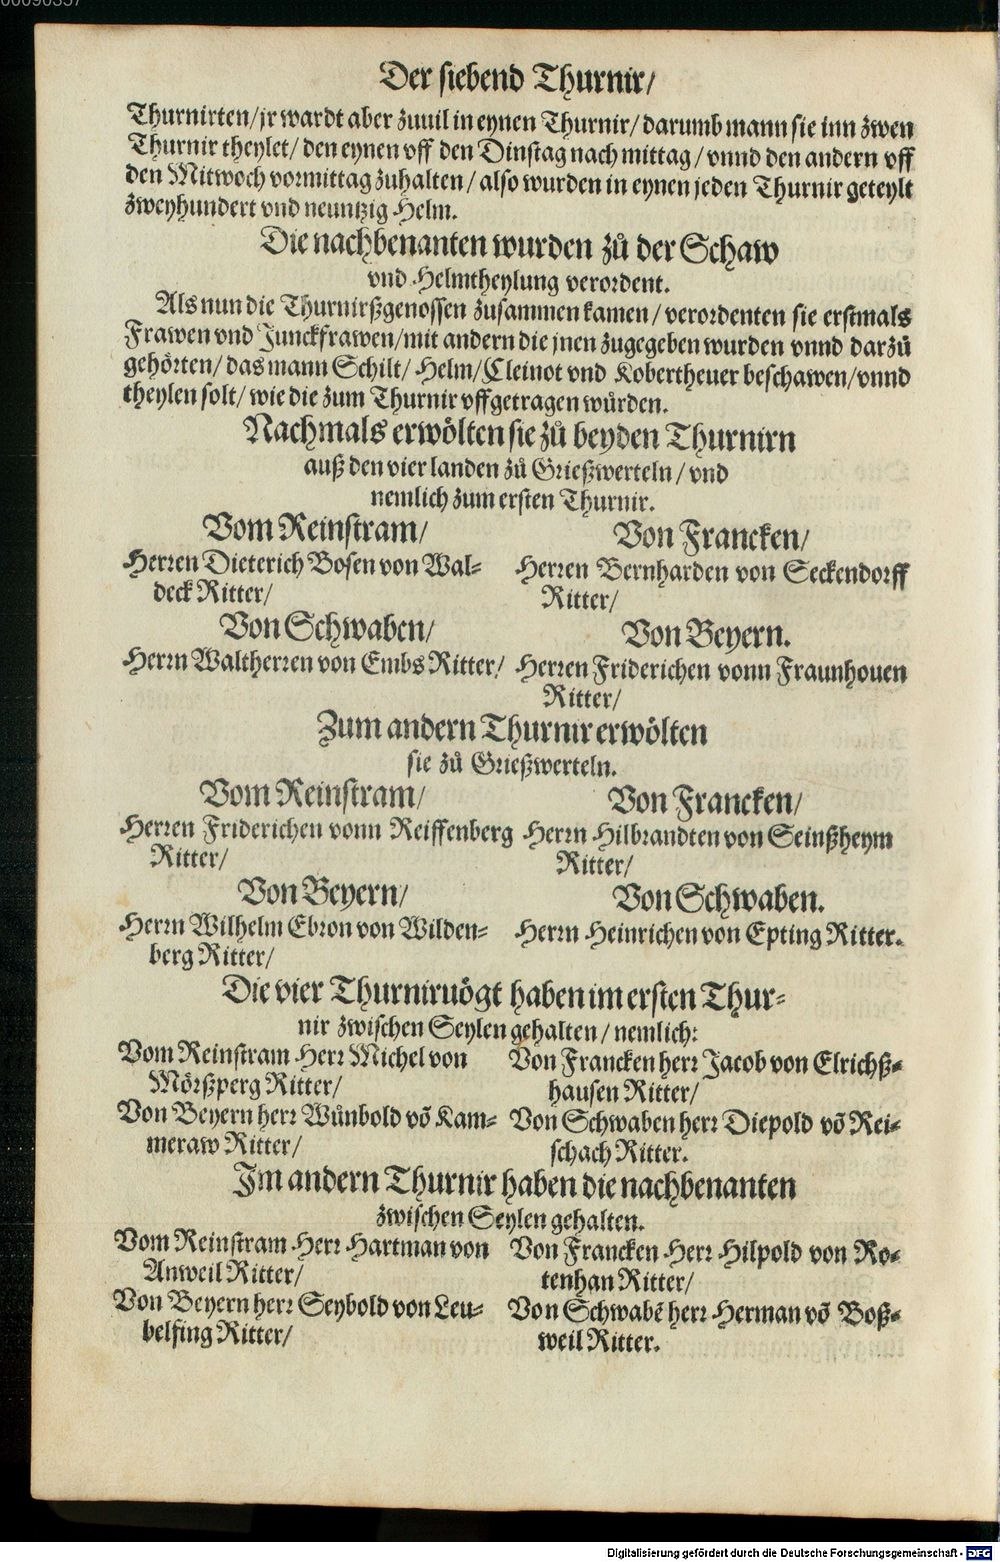 00090357
Der siebend Thurnir/
Thurnirten/jr wardt aber zuuil in eynen Thurnir/ darumb mann sie inn zwen
Thurnir theylet/ den eynen vff den Dinstag nach mittag/ vnnd den andern vff
den Mitwoch vormittag zuhalten/ also wurden in eynen jeden Thurnir geteylt
zweyhundert vnd neuntzig Helm.
Die nachbenanten wurden zů der Schaw
vnd Helmtheylung verordent.
Als nun die Thurnirßgenossen zusammen kamen/ verordenten sie erstmals
Frawen vnd Junckfrawen/mit andern die jnen zugegeben wurden vnnd darzů
gehörten/ das mann Schilt/ Helm/ Cleinot vnd Kobertheuer beschawen/vnnd
theylen solt/ wie die zum Thurnir vffgetragen würden.
Nachmals erwölten sie zů beyden Thurnirn
auß den vier landen zů Grießwerteln/ vnd
nemlich zum ersten Thurnir.
Vom Reinstram/
Herren Dieterich Bosen von Wal⸗
deck Ritter/
Von Francken/
Herren Bernharden von Seckendorff
Ritter/
Von Schwaben/
Herrn Waltherren von Embs Ritter/
Von Beyern.
Herren Friderichen vonn Fraunhouen
Ritter/
Zum andern Thurnir erwölten
sie zů Grießwerteln.
Vom Reinstram/
Herren Friderichen vonn Reiffenberg
Ritter/
Von Francken/
Herrn Hilbrandten von Seinßheym
Ritter/
Von Beyern/
Herrn Wilhelm Ebron von Wilden⸗
berg Ritter/
Von Schwaben.
Herrn Heinrichen von Epting Ritter.
Die vier Thurniruögt haben im ersten Thur⸗
nir zwischen Seylen gehalten/ nemlich:
Vom Reinstram Herr Michel von
Mörßperg Ritter/
Von Francken herr Jacob von Elrichß⸗
hausen Ritter/
Von Beyern herr Wůnbold võ Kam⸗
meraw Ritter/
Von Schwaben herr Diepold võ Rei⸗
schach Ritter.
Im andern Thurnir haben die nachbenanten
zwischen Seylen gehalten.
Vom Reinstram Herr Hartman von
Anweil Ritter/
Von Francken Herr Hilpold von Ro⸗
tenhan Ritter/
Von Beyern herr Seybold von Leu⸗
belfing Ritter/
Von Schwabẽ herr Herman võ Boß⸗
weil Ritter.
Digitalisierung gefördert durch die Deutsche Forschungsgemeinschaft - DFG